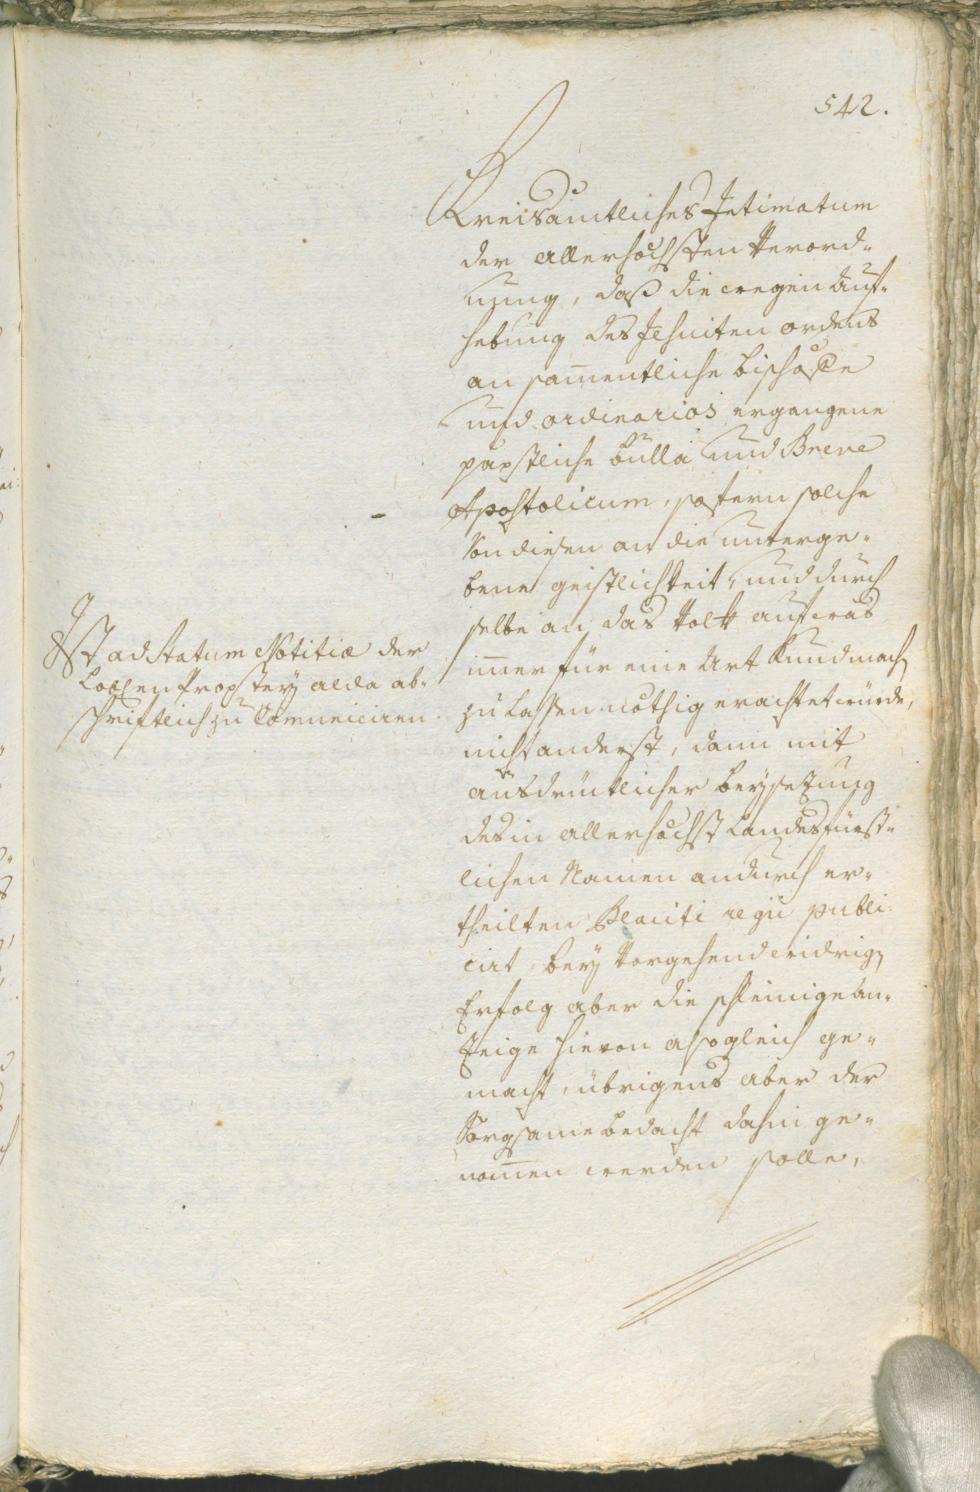 542.
Kreisämtliches Intimatum
der allerhöchsten Verord-
nung, daß die wegen Auf-
hebung des Jesuiten ordens
an sam̄entliche bischöffe
und ordinarios ergangene
päpstliche bulla und Breve
Apostolicum, sofern solche
von diesen an die unterge-
bene geistlichkeit, und durch
selbe an das Volk auf was
im̄er für eine Art Kundmach
zu lassen nöthig erachtet würde,
nicht anderst, dann mit
ausdrücklicher beysetzung
des in allerhöchst Landesfürst-
lichen Namen andurch er-
theilten Placiti regii publi-
cirt, bey Vorgehend widrig
Erfolg aber die schleunige An-
zeige hievon alsogleich ge-
macht, übrigens aber der
Sorgsame bedacht dahin ge-
nom̄en werden solle,
Ist ad statum Notitiæ der
Löblen Propstey alda ab-
schriftlich zu Com̄uniciren.